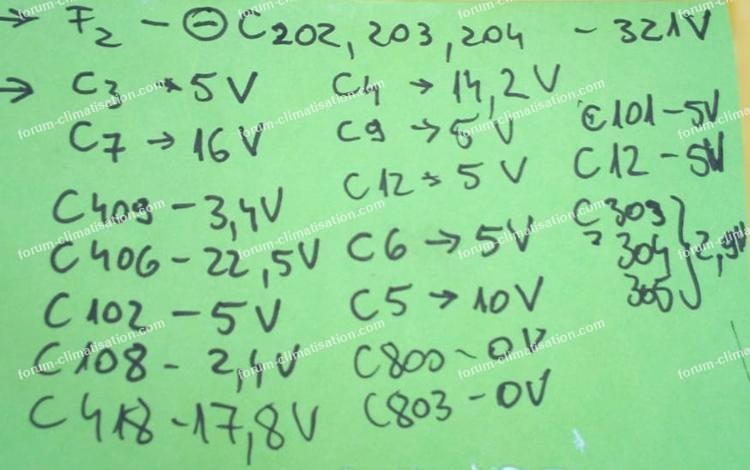 → F2 - ⊖ C202, 203, 204 - 321V
→ C3 → 5V
C4 → 14,2V
C101 - 5V
C7 → 16V
C9 → 5V
C12 - 5V
C12 → 5V
C409 - 3,4V
C303
C406 - 22,5V
C6 → 5V
304
C102 - 5V
C5 → 10V
305
C108 - 2,4V
C800 - 0V
C418 - 17,8V
C803 - 0V
forum-climatisation.com